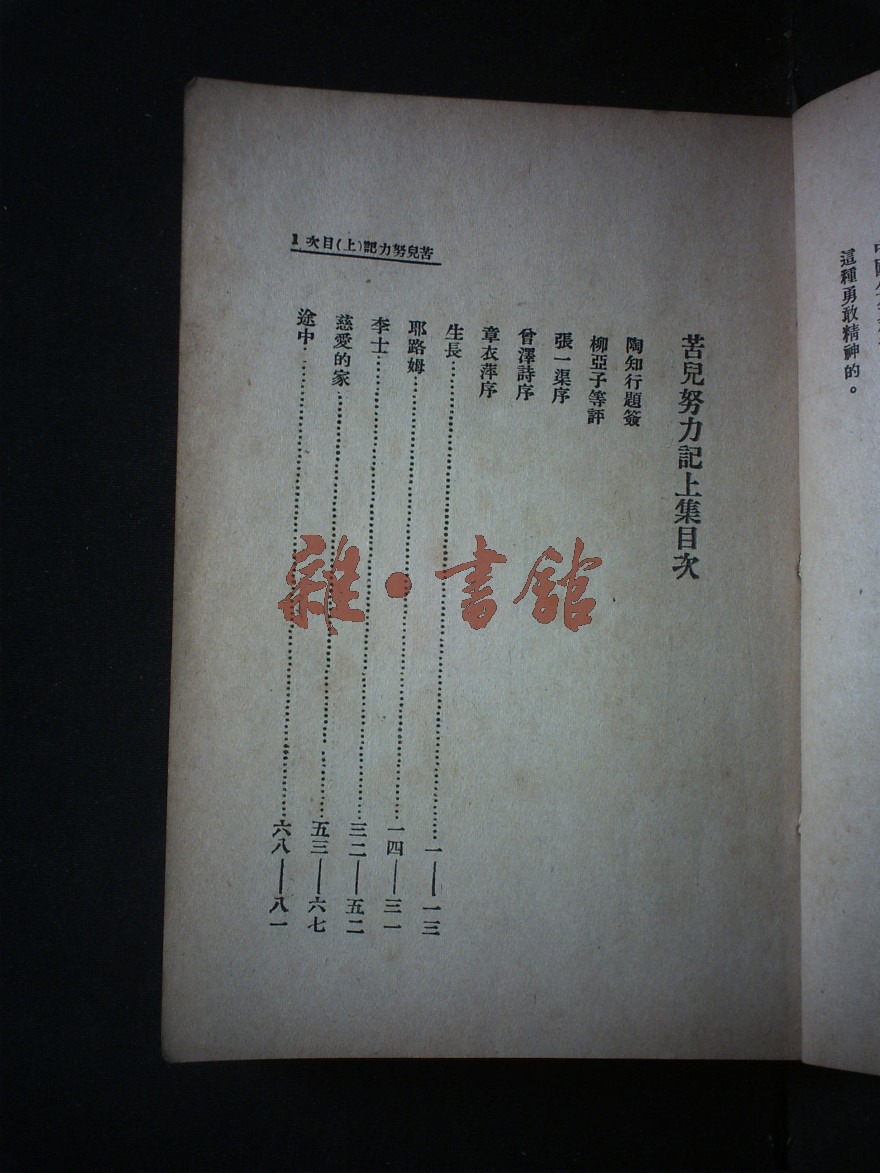 這種勇敢精神的。
苦兒努力記上集目次
陶知行題簽
柳亞子等評
張一渠序
曾澤詩序
章衣萍序
生長……一——一三
耶路姆……一四——三一
李士……三二——五二
慈愛的家……五三——六七
途中……六八——八一
苦兒努力記(上)目次 1
雜·書館